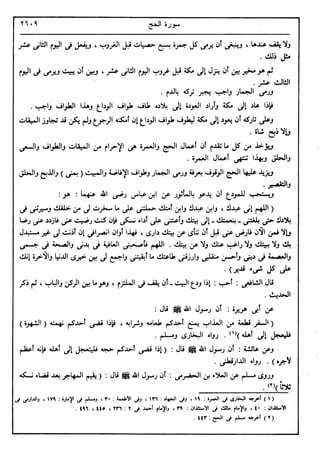 ٢٦٠٩
سورة الحج
ولا يقف عندها ، وينبغى أن يرمى كل جمرة بسبع حصيات قبل الغروب ، ويفعل فى اليوم الثانى عشر
مثل ذلك .
ثم هو مخير بين أن ينزل إلى مكة قبل غروب اليوم الثانى عشر ، وبين أن يبيت ويرمى فى اليوم
الثالث عشر .
ورمى الجمار واجب يجبر تركه بالدم .
فإذا عاد إلى مكة وأراد العودة إلى بلاده طاف طواف الوداع وهذا الطواف واجب .
وعلى تاركه أن يعود إلى مكة ليطوف طواف الوداع إن أمكنه الرجوع ولم يكن قد تجاوز الميقات
وإلا ذبح شاة .
ويؤخذ من كل ما تقدم أن أعمال الحج والعمرة هى الإحرام من الميقات والطواف والسعى
والحلق وبهذا تنتهى أعمال العمرة .
ويزيد عليها الحج الوقوف بعرفة ورمى الجمار وطواف الإفاضة والمبيت ( بمنى ) والذبح والحلق
والتقصير .
ويستحب للمودع أن يدعو بالمأثور عن ابن عباس رضى الله عنهما : هو :
( اللهم إنى عبدك ، وابن عبدك وابن أمتك حملتنى على ما سخرت لى من خلقك وسيرتنى فى
بلادك حتى بلغتنى – بنعمتك – إلى بيتك وأعنتنى على أداء نسكى فإن كنت رضيت عنى فازدد عنى رضا
وإلا فمن الآن فارض عنى قبل أن تنأى عن بيتك دارى ، فهذا أوان انصرافى إن أذنت لى غير مستبدل
بك ولا ببيتك ولا راغب عنك ولا عن بيتك . اللهم فأصحبنى العافية فى بدنى والصحة فى جسمى
والعصمة فى دينى وأحسن منقلبى وارزقنى طاعتك ما أبقيتنى واجمع لى بين خيرى الدنيا والآخرة إنك
على كل شىء قدير ) .
قال الشافعى : أحب : إذا ودع البيت – أن يقف فى الملتزم ، وهو ما بين الركن والباب ، ثم ذكر
الحديث .
عن أبى هريرة : أن رسول الله ﷺ قال :
( السفر قطعة من العذاب يمنع أحدكم طعامه وشرابه ، فإذا قضى أحدكم نهمته ( الشهوة )
فليتعجل إلى أهله )(١) . رواه البخارى ومسلم .
وعن عائشة : أن رسول الله ﷺ قال : ( إذا قضى أحدكم حجه فليتعجل إلى أهله فإنه أعظم
لأجره ) . رواه الدارقطنى .
وروى مسلم عن العلاء بن الحضرمى : أن رسول الله ﷺ قال : ( يقيم المهاجر بعد قضاء نسكه
ثلاثا )(٢) .
( ١ ) أخرجه البخارى فى العمرة : ١٩ ، وفى الجهاد : ١٣٦ ، وفى الأطعمة : ٣٠ ، ومسلم فى الإمارة : ١٧٩ ، والدارمى فى
الاستئذان : ٤٠ ، والإمام مالك فى الاستئذان : ٣٩ ، والإمام أحمد فى ٢ : ٢٣٦ ، ٤٤٥ ، ٤٩٦ .
( ٢ ) أخرجه مسلم فى الحج : ٤٤٣ .